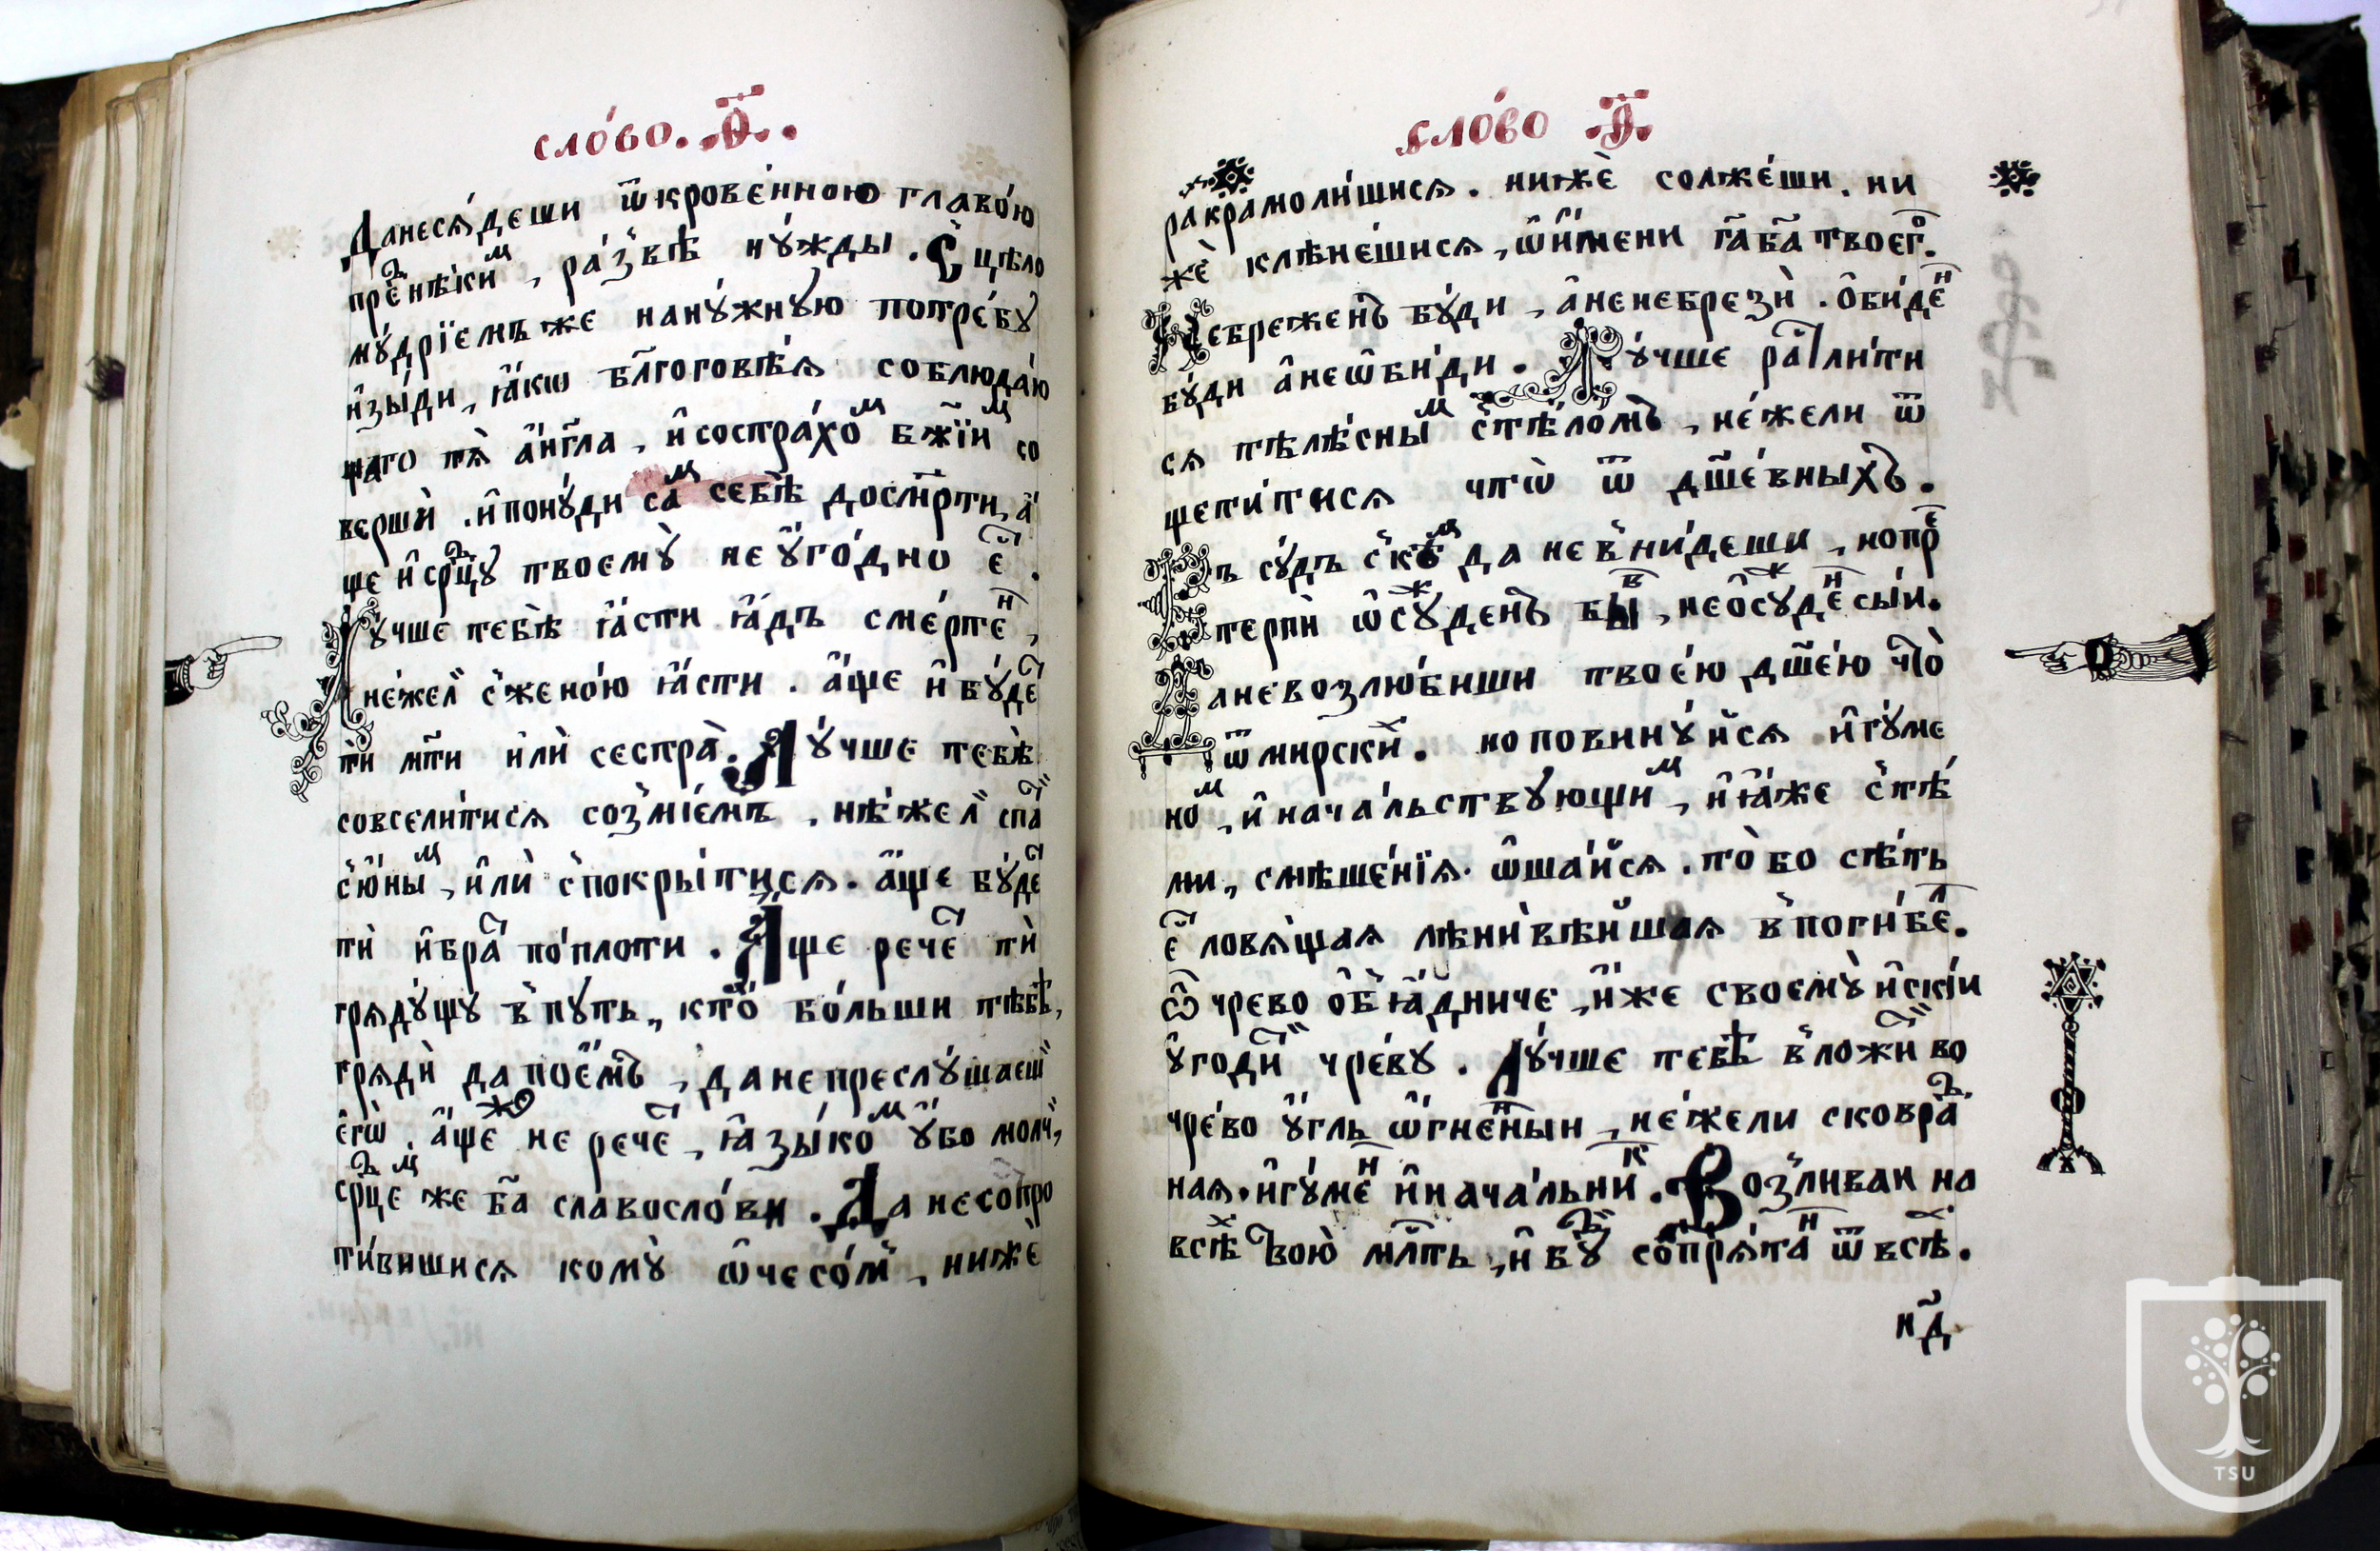 сло́во. ѳ҃.
Данеся́деши ѿкрове́нною главо́ю
пред̾нѣки́м, ра́звѣ ну́жды. Сцѣло
му́дрїемъже нану́жнꙋю потре́бꙋ
и҆зы́ди, ꙗ҆́кѡ бл҃гоговѣ́ѧ соблюда́ю
щаго тѧ̀ а҆́нг҃ла, и҆сострахо́м бж҃їим со
вершѝ. и҆пону́ди са́м себѣ̀ досм҃рти, а҆́
ще и҆ср҃дцꙋ твоемꙋ̀ неꙋ҆го́дно є҆ст.
Лꙋ́чше тебѣ̀ ꙗ҆́сти ꙗ҆́дъ сме́ртен,
не́жел с̾жено́ю ꙗ҆́сти. а҆́ще и҆ бꙋ́дет
тѝ мт҃и и҆лѝ сестра̀. Лꙋ́чше тебѣ̀
совсели́тися созмїе́мъ, нѣ́жел спат
с̾ю҆́ным, и҆лѝ с̾покры́тисѧ. а҆́ще бꙋ́дет
тѝ и҆бра́т по́плоти. А҆́ще рече́т тѝ
грядꙋ́щꙋ в̾пꙋть, кто̀ бо́льши тѣбѣ̀,
грядѝ да пое́мъ, данепреслꙋ́шаеш
є҆гѡ̀. а҆́ще же не рече́т, ꙗ҆зы́ком ꙋ҆́бо молч,
ср҃дцем же бг҃а славосло́ви. Да несопро
ти́вишися комꙋ̀ ѡ҆чесо́м, нижѐ
сло́во ѳ҃
ракрамоли́шися. нижѐ солже́ши. ни
жѐ клѣне́шися, ѡ҆и҆́мени гд҃а бг҃а твоегѡ.
Небреже́нъ бꙋ́ди, а҆ненебрезѝ. о҆би́ден
бꙋ́ди а҆неѡ҆би́ди. Лꙋ́чше растли́ти
ся тѣлѣ́сным с̾тѣ́ломъ, не́жели ѿ
щети́тися чтѡ̀ ѿ дш҃е́вныхъ.
Въ сꙋ́дъ с̾ке́м да нев̾ни́деши, нопре
терпѝ ѡ҆сꙋжденъ быв, нео҆сꙋжден сы́и.
Даневозлю́биши твое́ю дш҃е́ю что̀
ѿмирски́х. но повинꙋ́йся и҆гꙋ́ме
ном, и҆нача́льствꙋющим, и҆ꙗ҆́же с̾тѣ́
ми, смѣше́нїѧ. ѡ҆ша́йся. то̀ бо сѣ́ть
є҆ст ловѧ́щаѧ лѣни́вѣйшаѧ в̾поги́бел.
Ѽ чрево о҆б̾ꙗ҆́дниче, и҆́же своемꙋ̀ и҆скі́и
ꙋ҆годи́т чре́вꙋ. Лꙋ́чше тебѣ̀ в̾ложи́т во
чре́во ꙋ҆́гль ѡ҆́гненный, не́жели сковрад
ная. и҆гꙋ́мен и҆нача́льник. Возлива́й на
всѣх твою̀ мл҃ть, и҆ бꙋ́д сопрѧ́тан ѿ всѣх.
н҃д